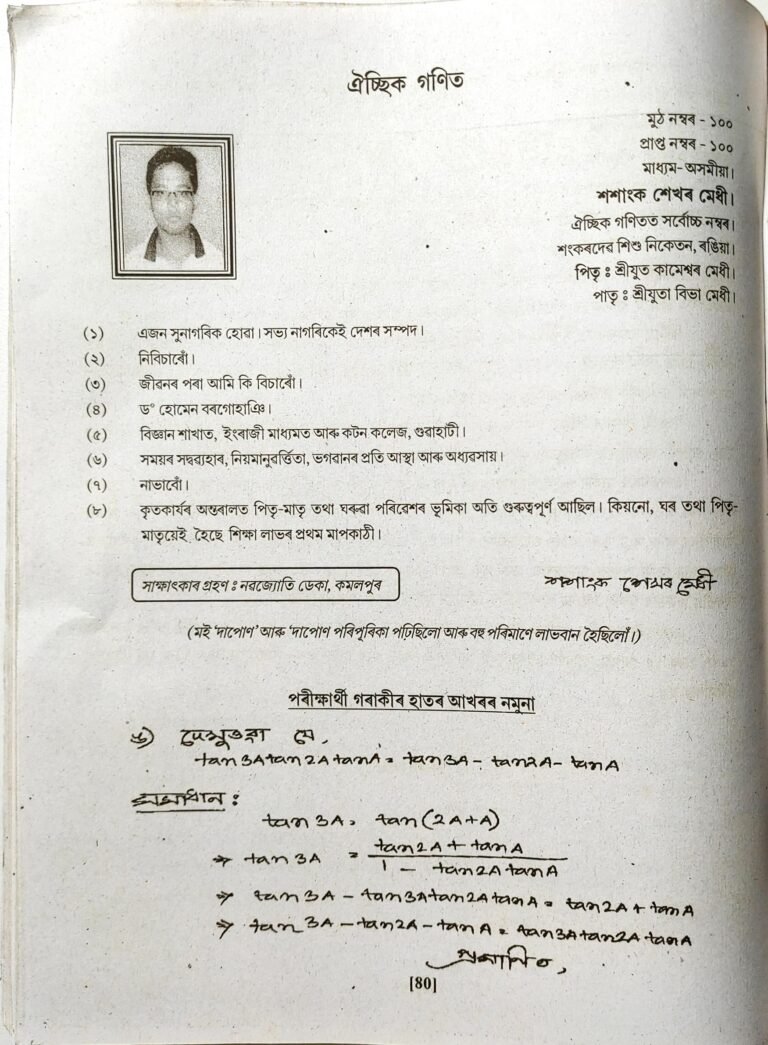 ঐচ্ছিক গণিত
মুঠ নম্বৰ - ১০০
প্ৰাপ্ত নম্বৰ - ১০০
মাধ্যম- অসমীয়া।
শশাংক শেখৰ মেধী।
ঐচ্ছিক গণিতত সৰ্বোচ্চ নম্বৰ।
শংকৰদেৱ শিশু নিকেতন, ৰঙিয়া।
পিতৃ : শ্ৰীযুত কামেশ্বৰ মেধী।
পাতৃ : শ্ৰীযুতা বিভা মেধী।
(১) এজন সুনাগৰিক হোৱা। সভ্য নাগৰিকেই দেশৰ সম্পদ।
(২) নিবিচাৰোঁ।
(৩) জীৱনৰ পৰা আমি কি বিচাৰোঁ।
(৪) ড° হোমেন বৰগোহাঞি।
(৫) বিজ্ঞান শাখাত, ইংৰাজী মাধ্যমত আৰু কটন কলেজ, গুৱাহাটী।
(৬) সময়ৰ সদ্ব্যৱহাৰ, নিয়মানুৱৰ্ত্তিতা, ভগৱানৰ প্ৰতি আস্থা আৰু অধ্যৱসায়।
(৭) নাভাবোঁ।
(৮) কৃতকাৰ্যৰ অন্তৰালত পিতৃ-মাতৃ তথা ঘৰুৱা পৰিৱেশৰ ভূমিকা অতি গুৰুত্বপূৰ্ণ আছিল। কিয়নো, ঘৰ তথা পিতৃ-
মাতৃয়েই হৈছে শিক্ষা লাভৰ প্ৰথম মাপকাঠী।
সাক্ষাৎকাৰ গ্ৰহণ : নৱজ্যোতি ডেকা, কমলপুৰ
শশাংক শেখৰ মেধী
(মই 'দাপোণ' আৰু 'দাপোণ পৰিপূৰিকা পঢ়িছিলো আৰু বহু পৰিমাণে লাভবান হৈছিলোঁ।)
পৰীক্ষাৰ্থী গৰাকীৰ হাতৰ আখৰৰ নমুনা
দেখুওৱা যে,
tan3Atan2AtanA = tan3A - tan2A - tanA
সমাধান :
tan3A = tan(2A+A)
⇒ tan3A = tan2A + tanA / 1 - tan2AtanA
⇒ tan3A - tan3Atan2AtanA = tan2A + tanA
⇒ tan3A - tan2A - tanA = tan3Atan2AtanA
প্ৰমাণিত,
[80]